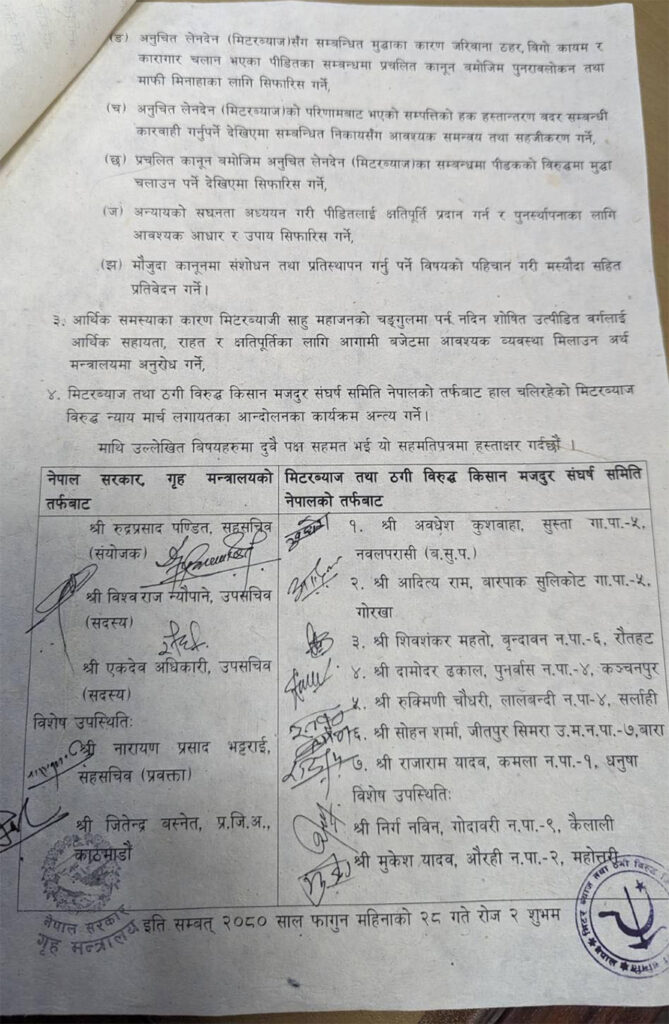 (ङ) अनुचित लेनदेन (मिटरब्याज)सँग सम्बन्धित मुद्दाका कारण जरिवाना ठहर, विगो कायम र
कारागार चलान भएका पीडितका सम्बन्धमा प्रचलित कानून बमोजिम पुनरावलोकन तथा
माफी मिनाहाका लागि सिफारिस गर्ने,
(च) अनुचित लेनदेन (मिटरब्याज)को परिणामबाट भएको सम्पत्तिको हक हस्तान्तरण वदर सम्बन्धी
कारवाही गर्नुपर्ने देखिएमा सम्बन्धित निकायसँग आवश्यक समन्वय तथा सहजीकरण गर्ने,
(छ) प्रचलित कानून बमोजिम अनुचित लेनदेन (मिटरब्याज)का सम्बन्धमा पीडकको विरुद्धमा मुद्धा
चलाउन पर्ने देखिएमा सिफारिस गर्ने,
(ज) अन्यायको सघनता अध्ययन गरी पीडितलाई क्षतिपूर्ति प्रदान गर्न र पुनर्स्थापनाका लागि
आवश्यक आधार र उपाय सिफारिस गर्ने,
(झ) मौजुदा कानूनमा संशोधन तथा प्रतिस्थापन गर्नु पर्ने विषयको पहिचान गरी मस्यौदा सहित
प्रतिवेदन गर्ने।
३. आर्थिक समस्याका कारण मिटरब्याजी साहु महाजनको चङ्गुलमा पर्न नदिन शोषित उत्पीडित वर्गलाई
आर्थिक सहायता, राहत र क्षतिपूर्तिका लागि आगामी बजेटमा आवश्यक व्यवस्था मिलाउन अर्थ
मन्त्रालयमा अनुरोध गर्ने,
४. मिटरब्याज तथा ठगी विरुद्ध किसान मजदुर संघर्ष समिति नेपालको तर्फबाट हाल चलिरहेको मिटरब्याज
विरुद्ध न्याय मार्च लगायतका आन्दोलनका कार्यक्रम अन्त्य गर्ने।
माथि उल्लेखित विषयहरुमा दुवै पक्ष सहमत भई यो सहमतिपत्रमा हस्ताक्षर गर्दछौं ।
नेपाल सरकार, गृह मन्त्रालयको
तर्फबाट
श्री रुद्रप्रसाद पण्डित, सहसचिव
(संयोजक)
श्री विश्व राज न्यौपाने, उपसचिव
(सदस्य)
श्री एकदेव अधिकारी, उपसचिव
(सदस्य)
विशेष उपस्थितिः
श्री नारायण प्रसाद भट्टराई,
सहसचिव (प्रवक्ता)
श्री जितेन्द्र बस्नेत, प्र.जि.अ.,
काठमाडौं
मिटरब्याज तथा ठगी विरुद्ध किसान मजदुर संघर्ष समिति
नेपालको तर्फबाट
१. श्री अवधेश कुशवाहा, सुस्ता गा.पा.-५,
नवलपरासी (ब.सु.प.)
२. श्री आदित्य राम, बारपाक सुलिकोट गा.पा.-५,
गोरखा
३. श्री शिवशंकर महतो, बृन्दावन न.पा.-६, रौतहट
४. श्री दामोदर ढकाल, पुनर्वास न.पा.-४, कञ्चनपुर
५. श्री रुक्मिणी चौधरी, लालबन्दी न.पा-४, सर्लाही
६. श्री सोहन शर्मा, जीतपुर सिमरा उ.म.न.पा.-७,बारा
७. श्री राजाराम यादव, कमला न.पा.-१, धनुषा
विशेष उपस्थितिः
श्री निर्ग नविन, गोदावरी न.पा.-९, कैलाली
श्री मुकेश यादव, औरही न.पा.-२, महोत्तरी
नेपाल सरकार
गृह मन्त्रालय
इति सम्बत् २०८० साल फागुन महिनाको २८ गते रोज २ शुभम